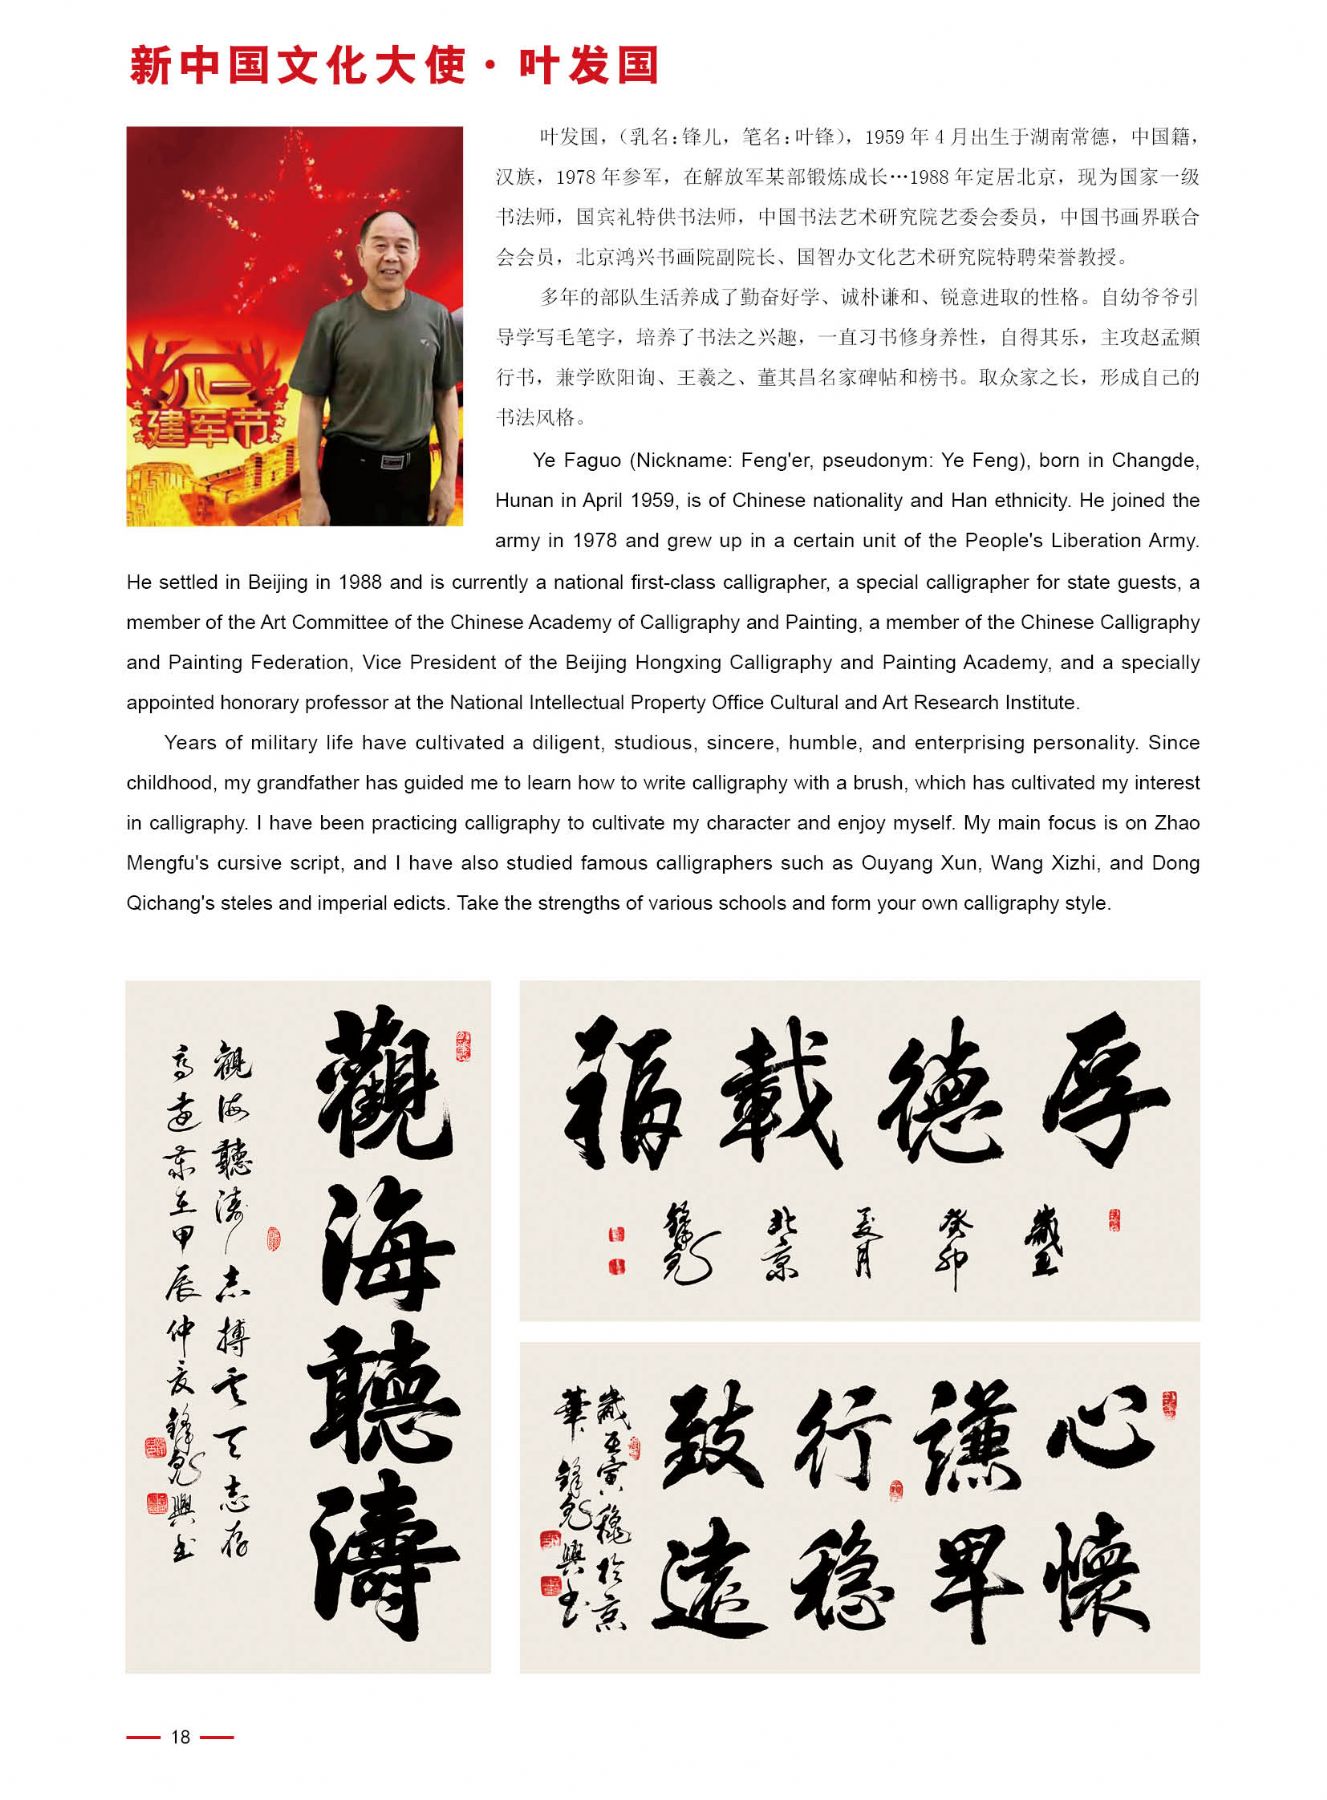 新中国文化大使·叶发国
叶发国，（乳名：锋儿，笔名：叶锋），1959年4月出生于湖南常德，中国籍，
汉族，1978年参军，在解放军某部锻炼成长…1988年定居北京，现为国家一级
书法师，国宾礼特供书法师，中国书法艺术研究院艺委会委员，中国书画界联合
会会员，北京鸿兴书画院副院长、国智办文化艺术研究院特聘荣誉教授。
多年的部队生活养成了勤奋好学、诚朴谦和、锐意进取的性格。自幼爷爷引
导学写毛笔字，培养了书法之兴趣，一直习书修身养性，自得其乐，主攻赵孟頫
行书，兼学欧阳询、王羲之、董其昌名家碑帖和榜书。取众家之长，形成自己的
书法风格。
八一
建军节
Ye Faguo (Nickname: Feng'er, pseudonym: Ye Feng), born in Changde,
Hunan in April 1959, is of Chinese nationality and Han ethnicity. He joined the
army in 1978 and grew up in a certain unit of the People's Liberation Army.
He settled in Beijing in 1988 and is currently a national first-class calligrapher, a special calligrapher for state guests, a
member of the Art Committee of the Chinese Academy of Calligraphy and Painting, a member of the Chinese Calligraphy
and Painting Federation, Vice President of the Beijing Hongxing Calligraphy and Painting Academy, and a specially
appointed honorary professor at the National Intellectual Property Office Cultural and Art Research Institute.
Years of military life have cultivated a diligent, studious, sincere, humble, and enterprising personality. Since
childhood, my grandfather has guided me to learn how to write calligraphy with a brush, which has cultivated my interest
in calligraphy. I have been practicing calligraphy to cultivate my character and enjoy myself. My main focus is on Zhao
Mengfu's cursive script, and I have also studied famous calligraphers such as Ouyang Xun, Wang Xizhi, and Dong
Qichang's steles and imperial edicts. Take the strengths of various schools and form your own calligraphy style.
觀海聽濤
觀海聽濤志搏雲天志存
高遠歲在甲辰仲夏鋒兒興書
厚德載福
歲在
癸卯
夏月
北京
鋒兒
心懷
謙卑
行稳
致遠
歲壬寅穐於京
華鋒兒興書
18